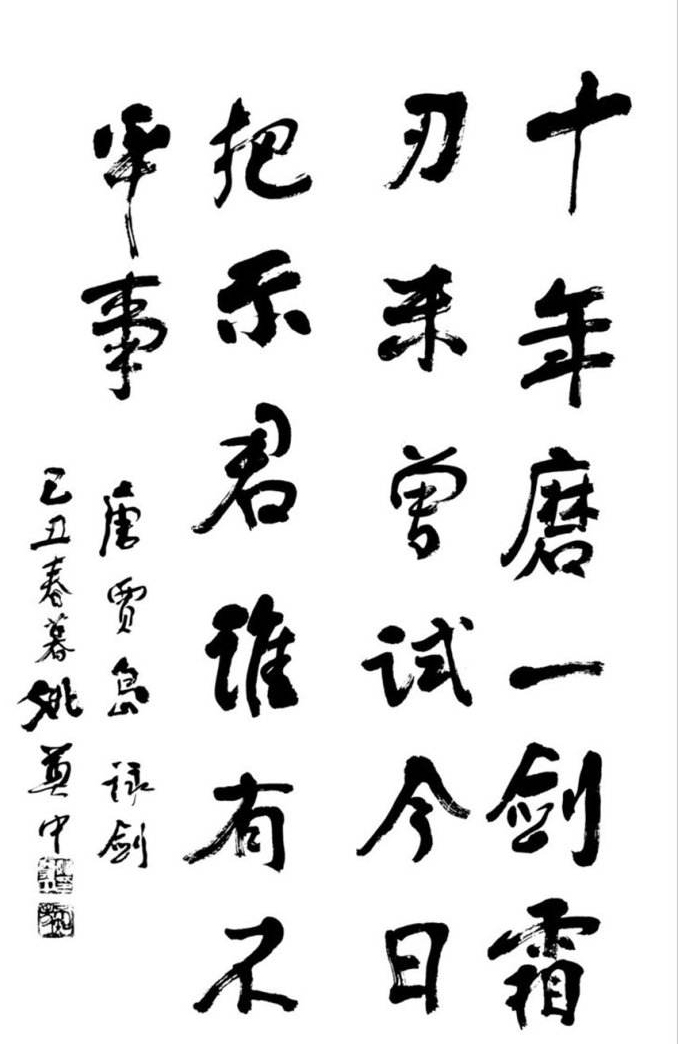 十年磨一剑霜
刃未曾试今日
把示君谁有不
平事
唐贾岛咏剑
己丑春暮姚奠中